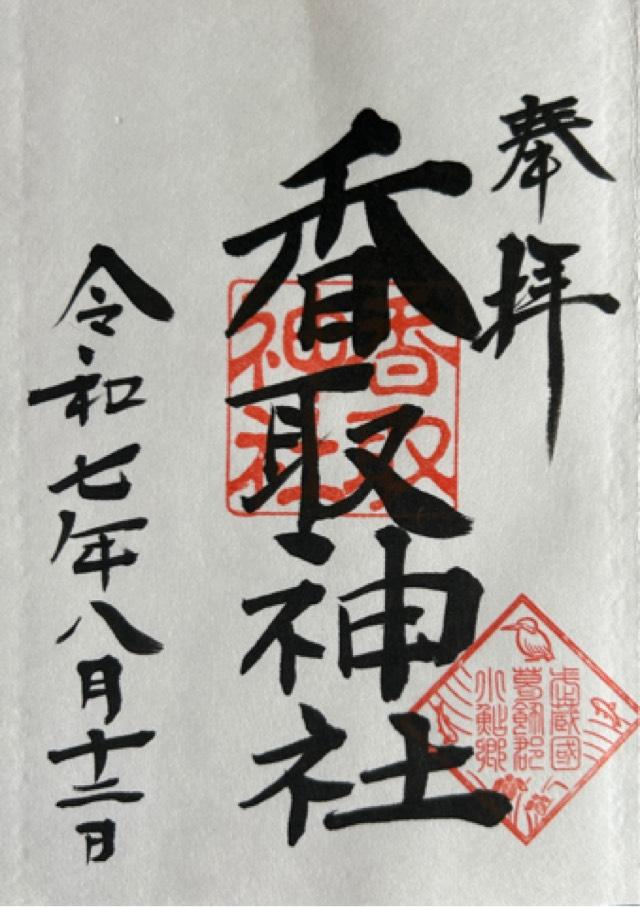 奉拝
香取神社
香取
神社
武蔵國
葛飾郡
小鮎郷
令和七年八月十二日